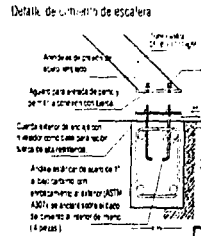 Detalle de cimiento de escalera
Arandelas de presión de
acero templado
Agujero para entrada de perno y
permitir la conexión con tuerca
Cuerda exterior de anclaje con
nivelador como base para recibir
tuerca de alta resistencia
Ancla estándar de acero de 1"
a bajo carbono con
enroscamiento al exterior (ASTM
A307) se anclará sobre el dado
de cimiento al interior del mismo
(4 piezas)